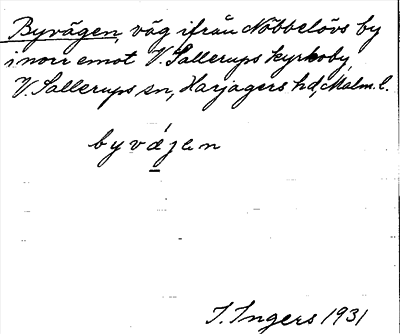 Byvägen, väg ifrån Nöbbelövs by
i norr emot V. Sallerups kyrkoby,
V. Sallerups sn, Harjagers hd, Malm. l.
byvǽjen
I. Ingers 1931